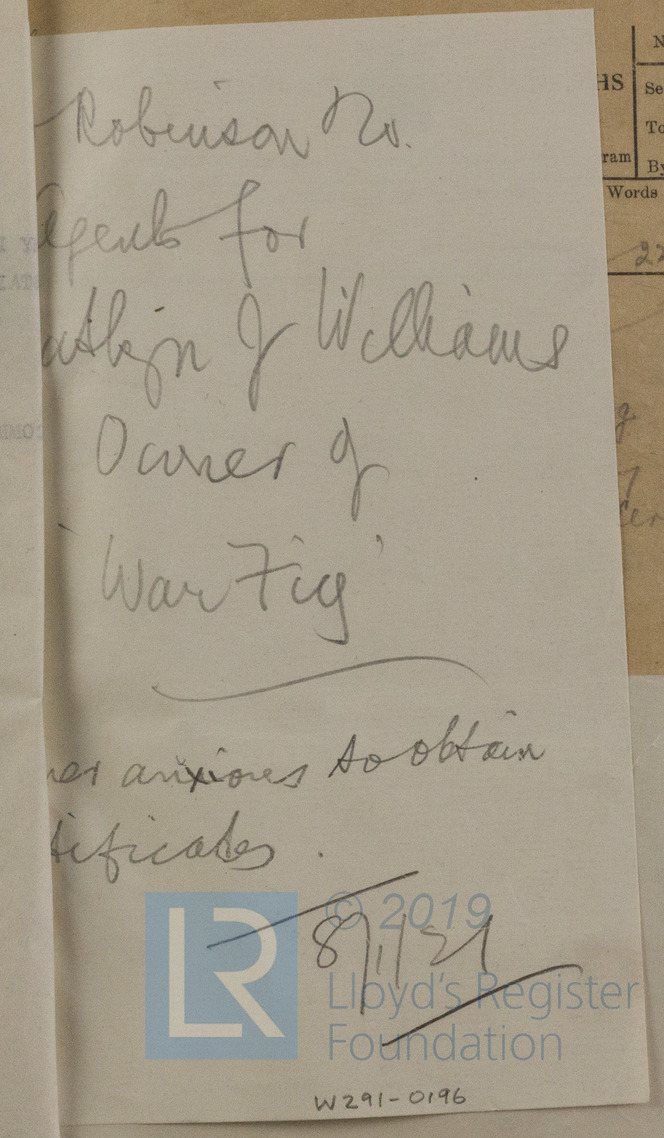 Robinson No.
Agents for
athlyn J Williams
Owner of
'War Fig'
ner anxious to obtain
tificates.
8/1/21
LR
© 2019
Lloyd's Register
Foundation
W291-0196
HS
ram
N
Se
To
By
Words
22